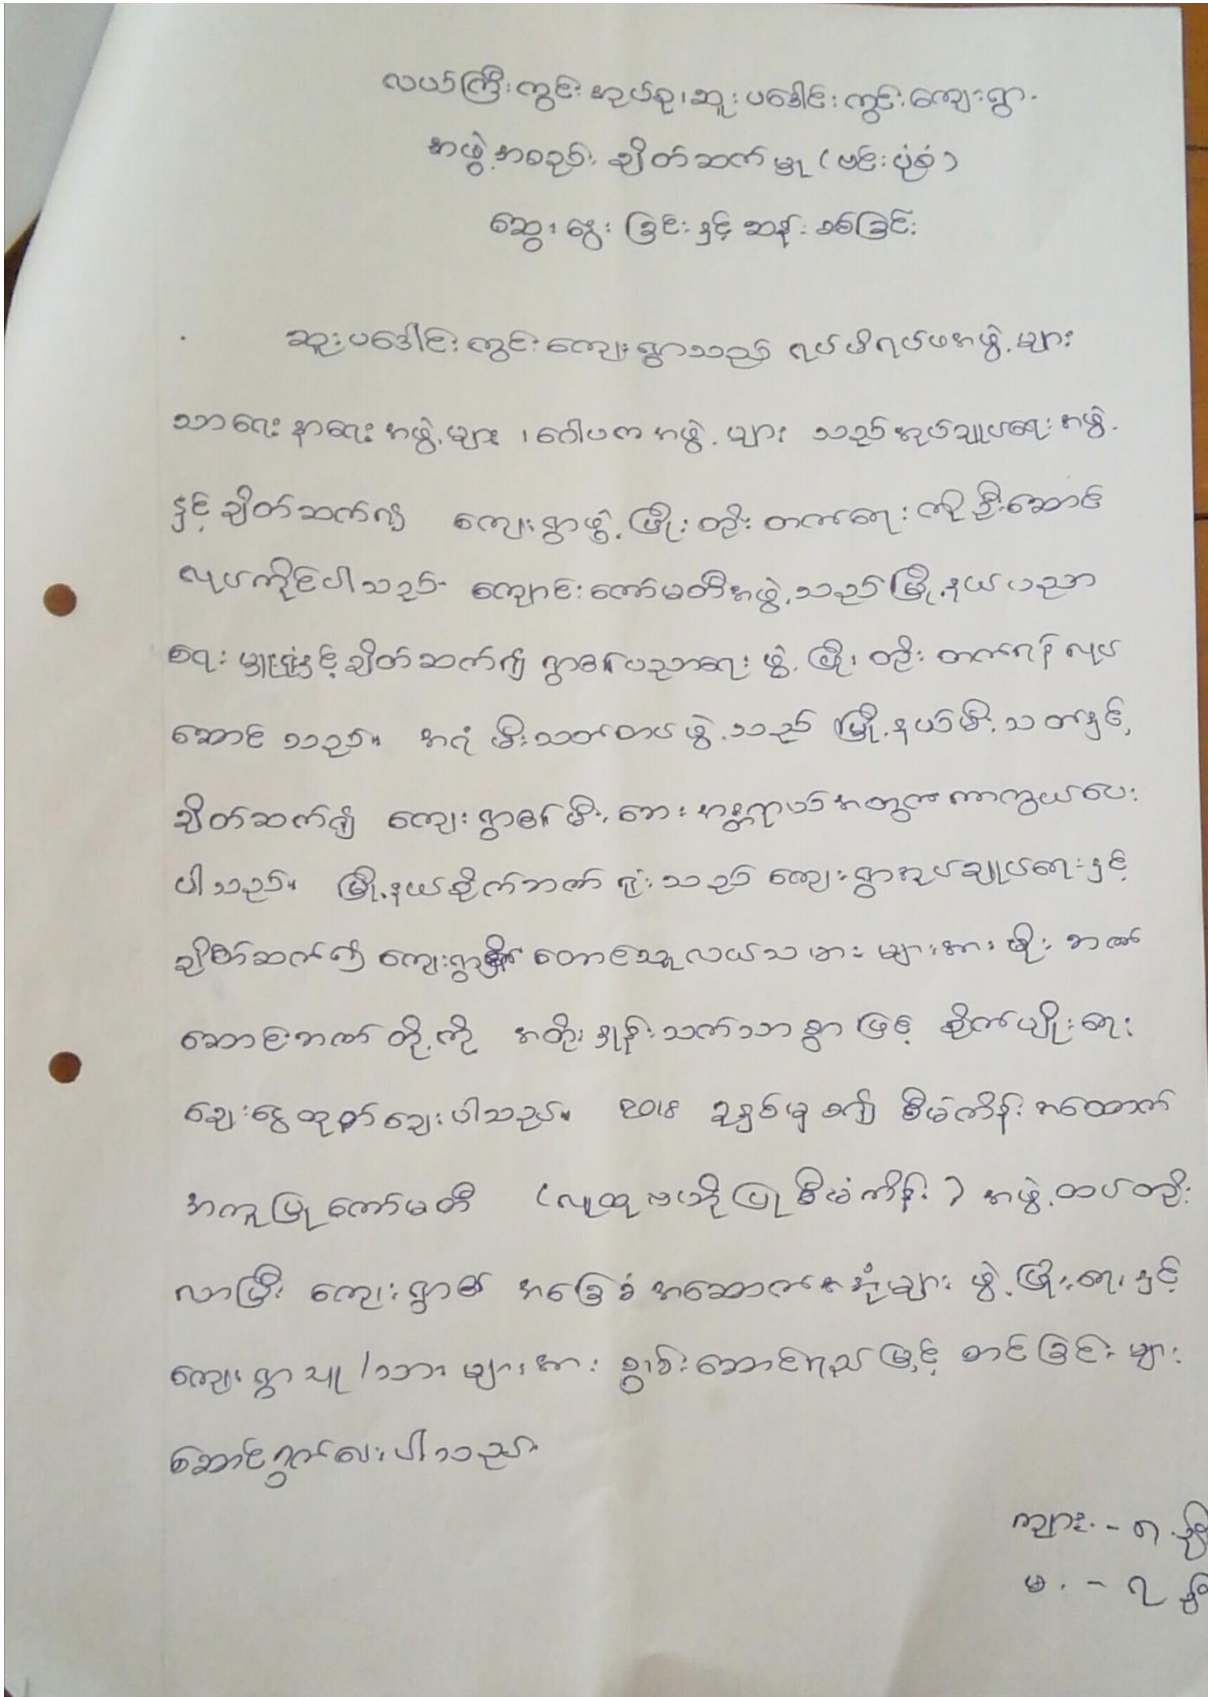 လယ်ကြီးကွင်းအုပ်စု၊ဆူးပဒေါင်းကွင်းကျေးရွာ
အဖွဲ့အစည်း ချိတ်ဆက်မှု (ဗင်းပုံစံ)
ဆွေးနွေးခြင်းနှင့်ဆန်းစစ်ခြင်း
ဆူးပဒေါင်းကွင်းကျေးရွာသည် ရပ်မိရပ်ဖအဖွဲ့များ
သာရေးနာရေးအဖွဲ့များ၊ဂေါပကအဖွဲ့များ သည်အုပ်ချုပ်ရေးအဖွဲ့
နှင့်ချိတ်ဆက်၍ ကျေးရွာဖွံ့ဖြိုးတိုးတက်ရေးကိုဦးဆောင်
လုပ်ကိုင်ပါသည်။ ကျောင်းကော်မတီအဖွဲ့သည်မြို့နယ်ပညာ
ရေးမှူးရုံးနှင့်ချိတ်ဆက်၍ ရွာ၏ပညာရေးဖွံ့ဖြိုးတိုးတက်ရန်လုပ်
ဆောင်သည်။ အရံမီးသတ်တပ်ဖွဲ့သည် မြို့နယ်မီးသတ်နှင့်
ချိတ်ဆက်၍ ကျေးရွာ၏မီးဘေးအန္တရာယ်အတွက်ကာကွယ်ပေး
ပါသည်။ မြို့နယ်စိုက်ဘဏ်ရုံးသည် ကျေးရွာအုပ်ချုပ်ရေးနှင့်
ချိတ်ဆက်၍ ကျေးရွာ၏ တောင်သူလယ်သမားများအား မိုးဘဏ်
ဆောင်းဘဏ်တို့ကို အတိုးနှုန်းသက်သာစွာဖြင့် စိုက်ပျိုးရေး
ချေးငွေထုတ်ချေးပါသည်။ ၂၀၁၈ ခုနှစ်မှစ၍ စီမံကိန်းအထောက်
အကူပြုကော်မတီ (လူထုဗဟိုပြုစီမံကိန်း) အဖွဲ့ထပ်တိုး
လာပြီး ကျေးရွာ၏ အခြေခံအဆောက်အအုံများ ဖွံ့ဖြိုးရေးနှင့်
ကျေးရွာသူ/သားများအား စွမ်းဆောင်ရည်မြှင့်တင်ခြင်းများ
ဆောင်ရွက်ပေးပါသည်။
ကျား -
မ -